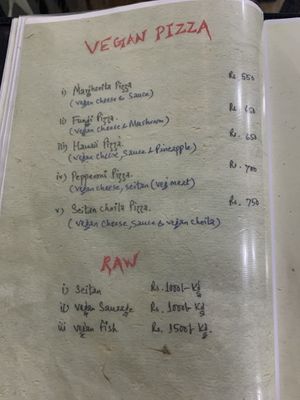 VEGAN PIZZA
i) Margherita Pizza Rs. 550
(vegan cheese & Sauce)
ii) Fungi Pizza. Rs. 650
(vegan cheese & Mushroom)
iii) Hawaii Pizza. Rs. 650
(vegan cheese, Sauce & Pineapple)
iv) Pepperoni Pizza. Rs. 700
(vegan cheese, seitan (veg meat)
v) Seitan choila Pizza. Rs. 750
(vegan cheese, sauce & vegan choila)
RAW
i) Seitan Rs. 1000/- Kg
ii) vegan Sausage Rs. 1000/- Kg
iii vegan fish Rs. 1500/- Kg.